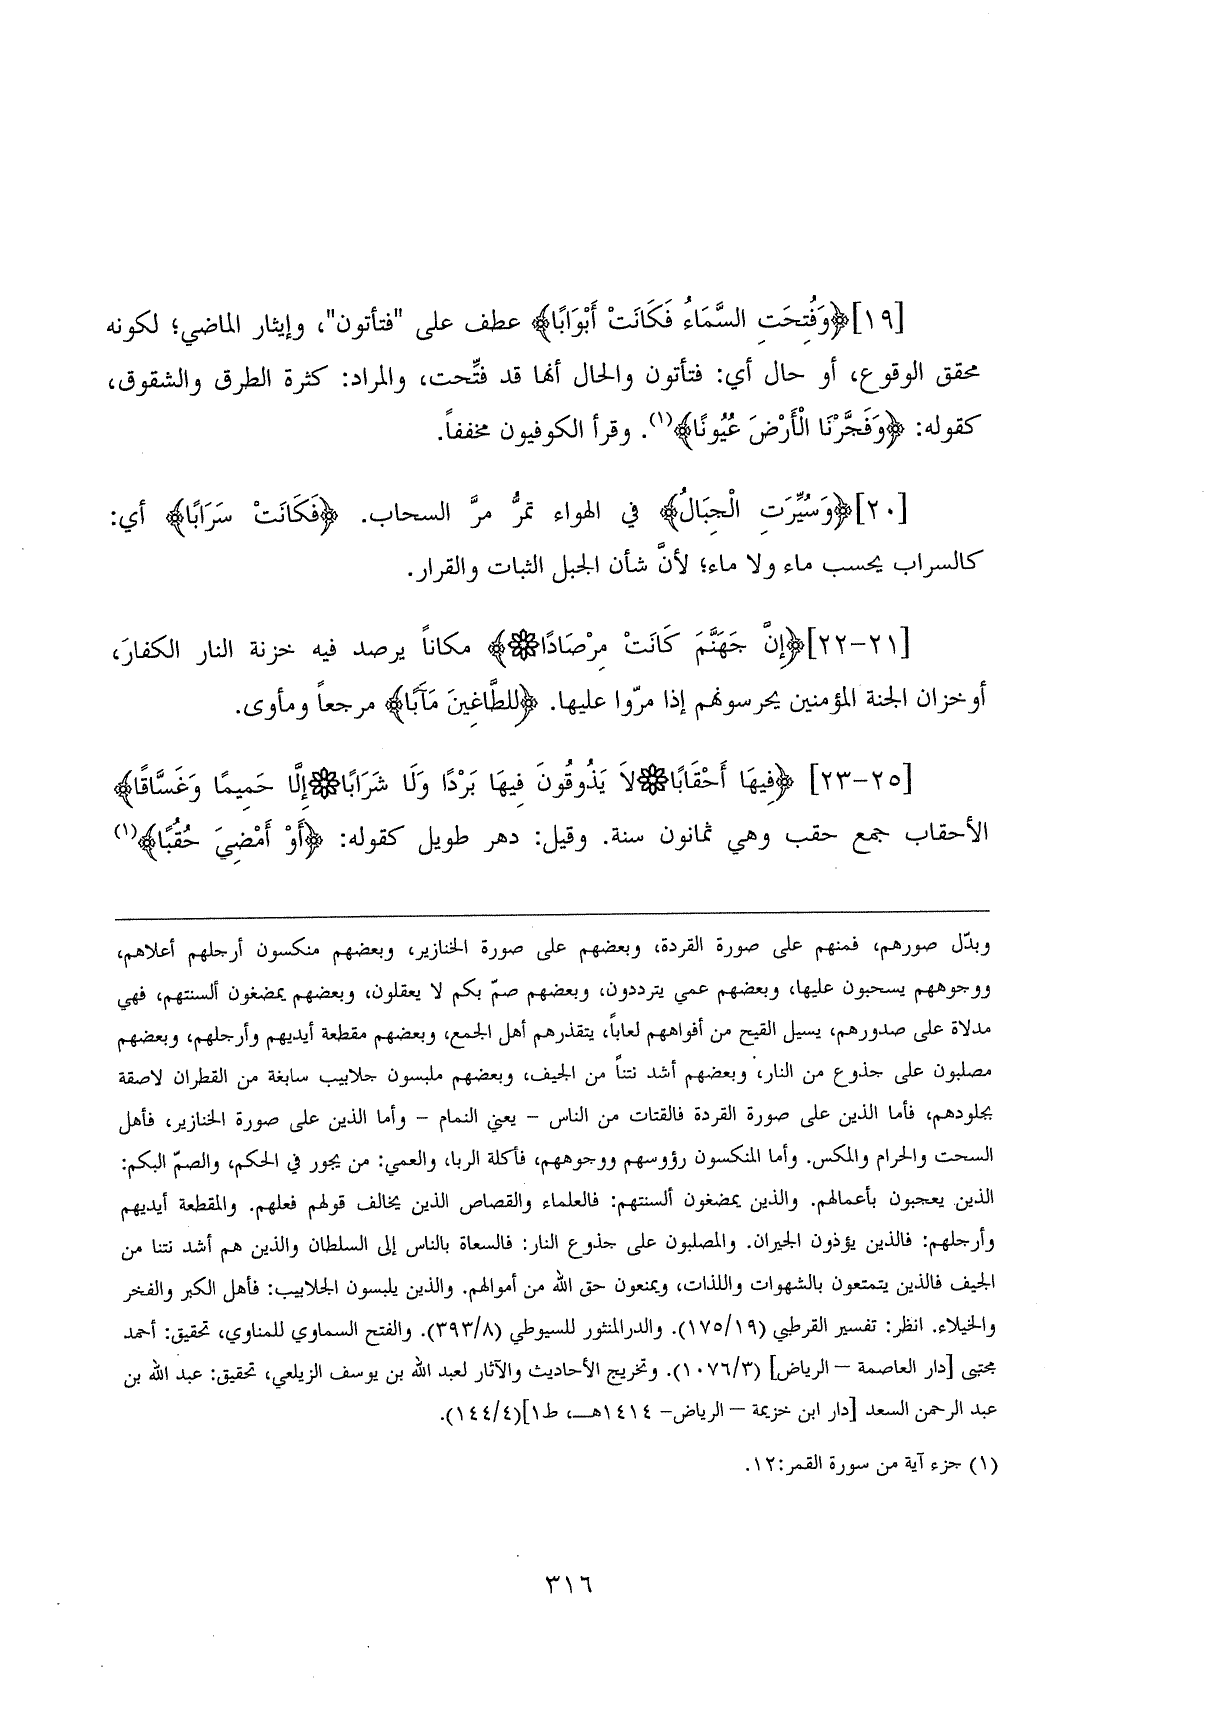 [١٩]﴿وَفُتِحَتِ السَّمَاءُ فَكَانَتْ أَبْوَابًا﴾ عطف على "فتأتون"، وإيثار الماضي؛ لكونه
محقق الوقوع، أو حال أي: فتأتون والحال أنها قد فتِّحت، والمراد: كثرة الطرق والشقوق،
كقوله: ﴿وَفَجَّرْنَا الْأَرْضَ عُيُونًا﴾(١). وقرأ الكوفيون مخففاً.
[٢٠]﴿وَسُيِّرَتِ الْجِبَالُ﴾ في الهواء تمرُّ مرَّ السحاب. ﴿فَكَانَتْ سَرَابًا﴾ أي:
كالسراب يحسب ماء ولا ماء؛ لأنَّ شأن الجبل الثبات والقرار.
[٢١-٢٢]﴿إِنَّ جَهَنَّمَ كَانَتْ مِرْصَادًا۞﴾ مكاناً يرصد فيه خزنة النار الكفارَ،
أو خزان الجنة المؤمنين يحرسونهم إذا مرّوا عليها. ﴿لِلطَّاغِينَ مَآبًا﴾ مرجعاً ومأوى.
[٢٣-٢٥] ﴿فِيهَا أَحْقَابًا۞لاَ يَذُوقُونَ فِيهَا بَرْدًا وَلَا شَرَابًا۞إِلَّا حَمِيمًا وَغَسَّاقًا﴾
الأحقاب جمع حقب وهي ثمانون سنة. وقيل: دهر طويل كقوله: ﴿أَوْ أَمْضِيَ حُقُبًا﴾(١)
وبدّل صورهم، فمنهم على صورة القردة، وبعضهم على صورة الخنازير، وبعضهم منكسون أرجلهم أعلاهم،
ووجوههم يسحبون عليها، وبعضهم عمي يترددون، وبعضهم صمّ بكم لا يعقلون، وبعضهم يمضغون ألسنتهم، فهي
مدلاة على صدورهم، يسيل القيح من أفواههم لعاباً، يتقذرهم أهل الجمع، وبعضهم مقطعة أيديهم وأرجلهم، وبعضهم
مصلبون على جذوع من النار، وبعضهم أشد نتناً من الجيف، وبعضهم ملبسون جلابيب سابغة من القطران لاصقة
بجلودهم، فأما الذين على صورة القردة فالقتات من الناس – يعني النمام – وأما الذين على صورة الخنازير، فأهل
السحت والحرام والمكس. وأما المنكسون رؤوسهم ووجوههم، فأكلة الربا، والعمي: من يجور في الحكم، والصمّ البكم:
الذين يعجبون بأعمالهم. والذين يمضغون ألسنتهم: فالعلماء والقصاص الذين يخالف قولهم فعلهم. والمقطعة أيديهم
وأرجلهم: فالذين يؤذون الجيران. والمصلبون على جذوع النار: فالسعاة بالناس إلى السلطان والذين هم أشد نتنا من
الجيف فالذين يتمتعون بالشهوات واللذات، ويمنعون حق الله من أموالهم. والذين يلبسون الجلابيب: فأهل الكبر والفخر
والخيلاء. انظر: تفسير القرطبي (١٧٥/١٩). والدرالمنثور للسيوطي (٣٩٣/٨). والفتح السماوي للمناوي، تحقيق: أحمد
مجتبى [دار العاصمة – الرياض] (١٠٧٦/٣). وتخريج الأحاديث والآثار لعبد الله بن يوسف الزيلعي، تحقيق: عبد الله بن
عبد الرحمن السعد [دار ابن خزيمة – الرياض- ١٤١٤هـ، ط١](١٤٤/٤).
(١) جزء آية من سورة القمر:١٢.
٣١٦